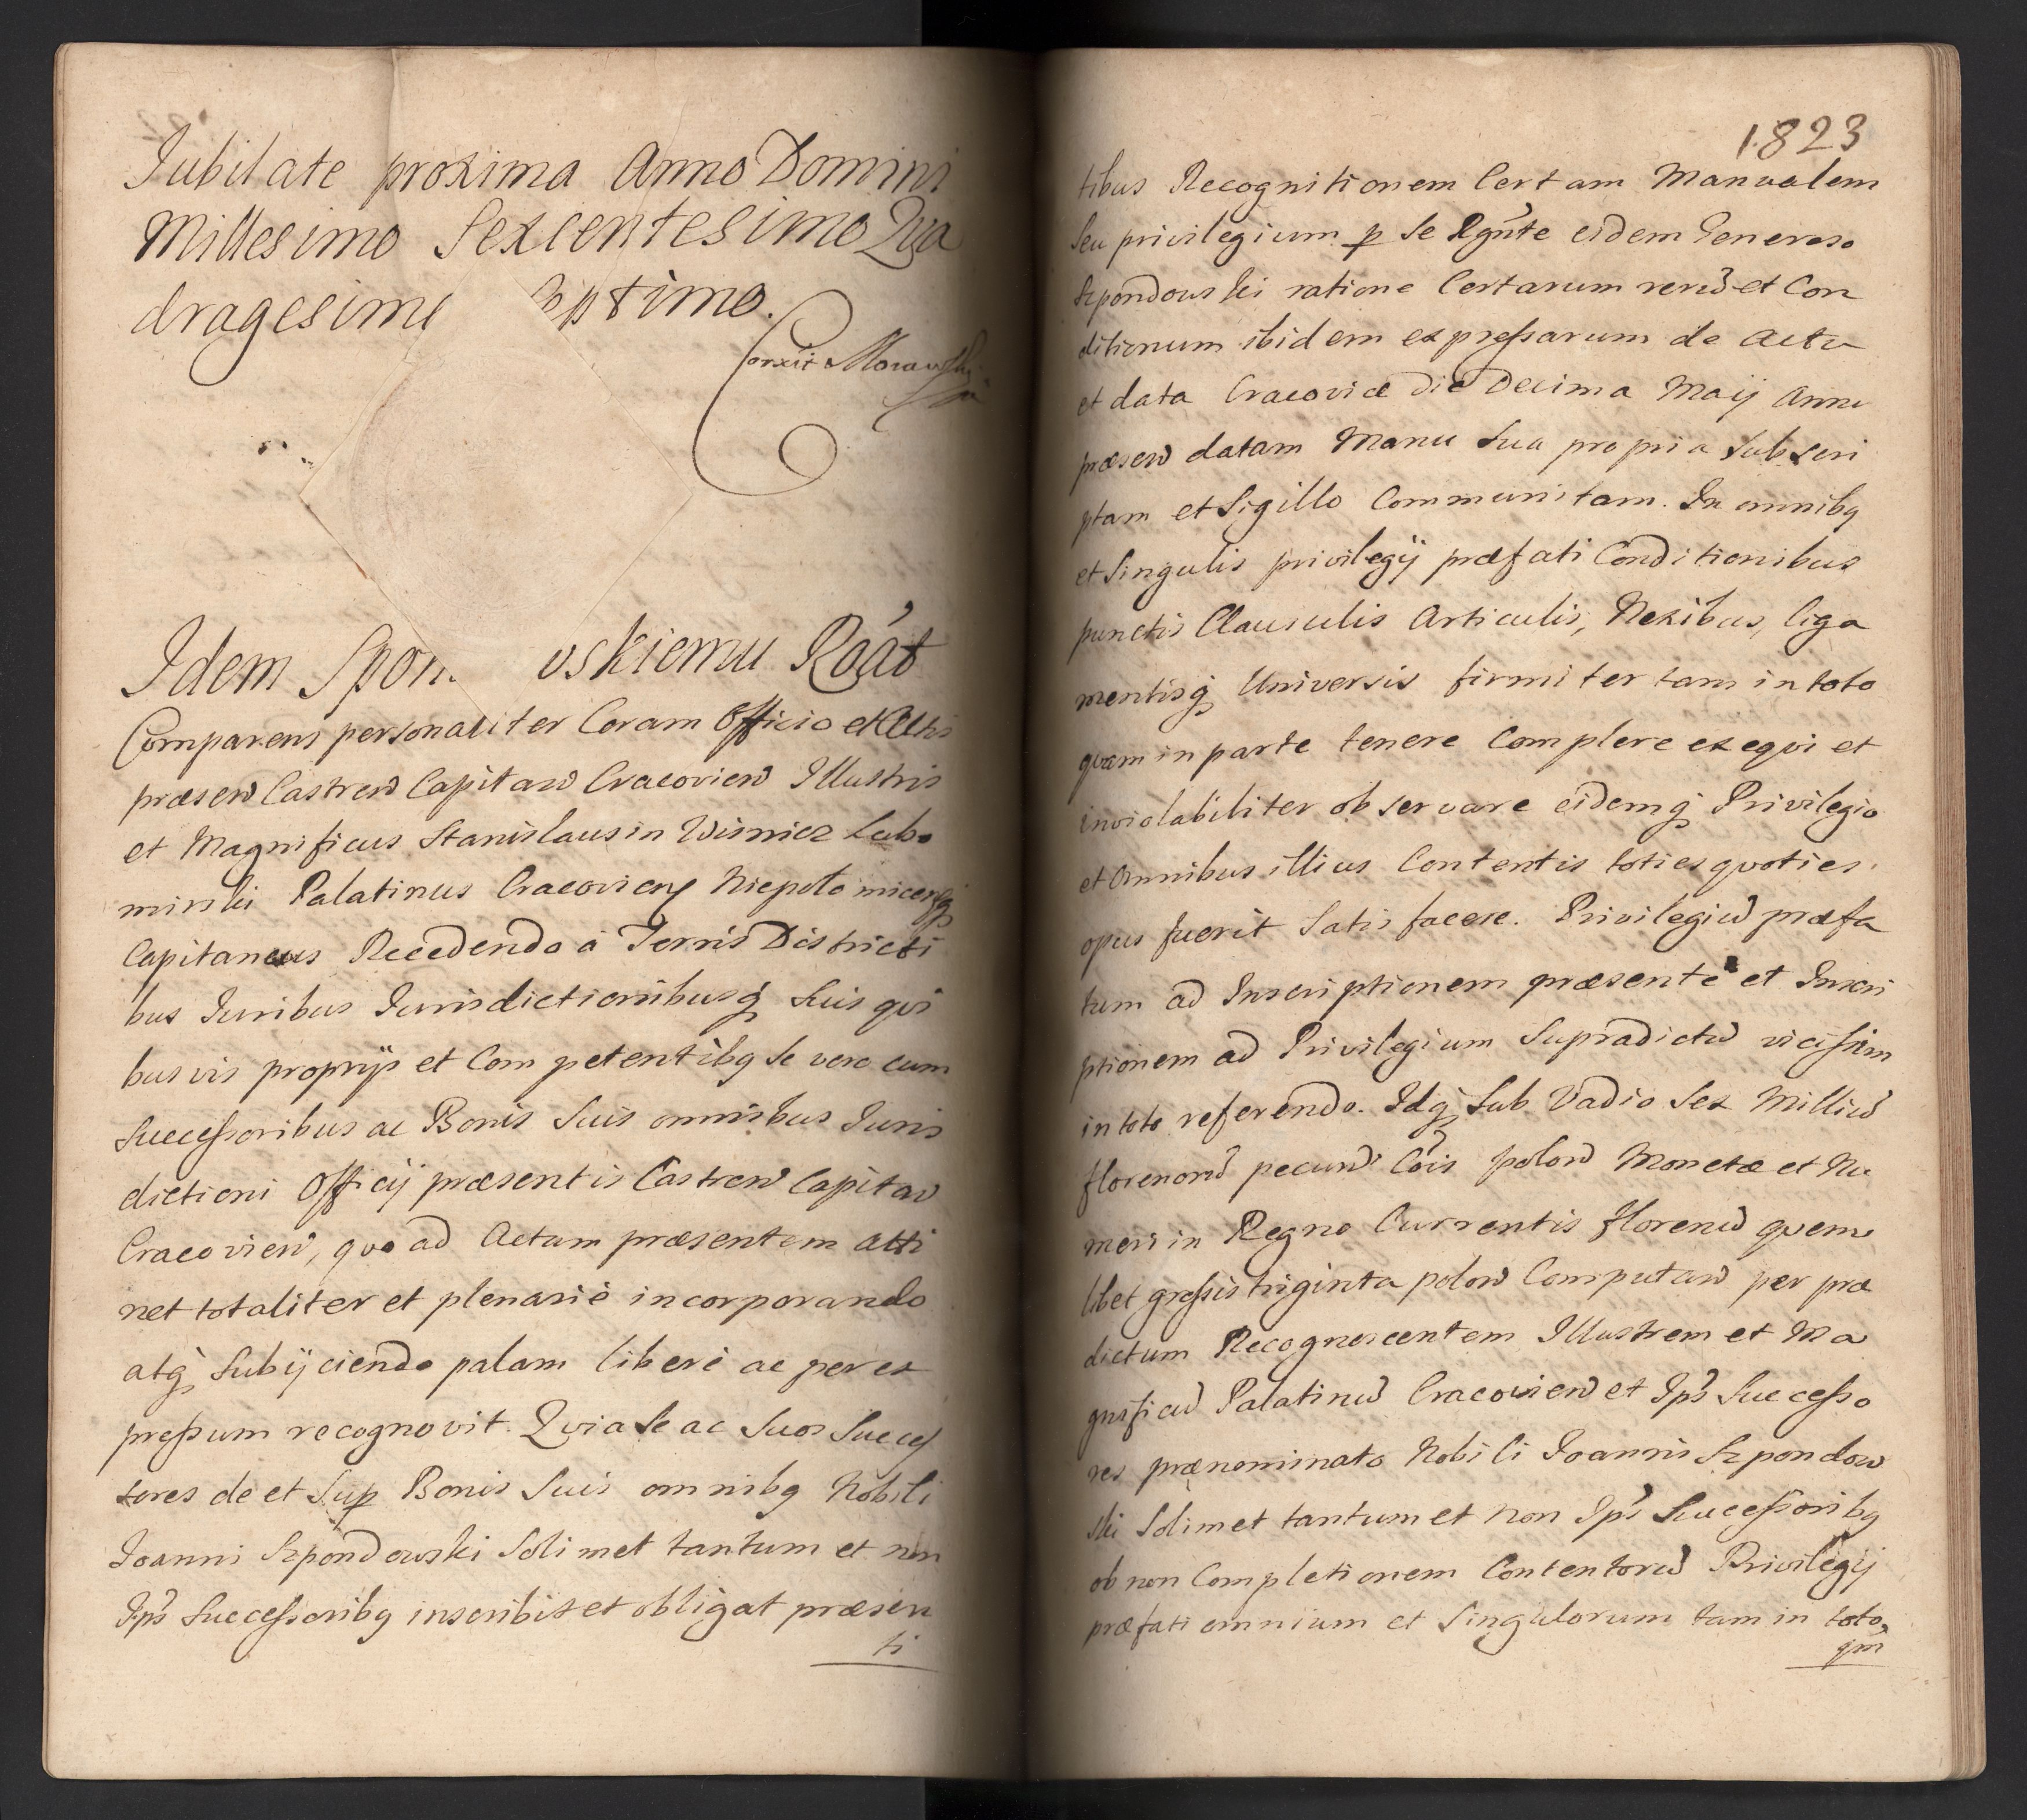 Iubilate proxima Anno Domini
Millesimo Sexcentesimo Qua
dragesimo Septimo.
Correxit Morawski
Idem Spon oskiemu Roát
Comparens personaliter Coram Officio et Actis
præsen Castren Capitan Cracovien Illustris
et Magnificus Stanislaus in Wisnicz Lubo
mirski Palatinus Cracovien Niepolomicen̄q̧
Capitaneus Recedendo á Terris Districti
bus Iuribus Iurisdictionibusq̧ Suis qui
bus vis proprijs et Competentibq Se vero cum
Successoribus ac Bonis Suis omnibus Iuris
dictioni Officij præsentis Castren Capitan
Cracovien, quo ad Actum præsentem atti
net totaliter et plenarié incorporando
atq̧ Subijciendo palam liberé ac per ex
pressum recognovit. Quia Se ac Suos Succes
sores de et Sup Bonis Suis omnibq Nobili
Joanni Szpondowski Solimet tantum et non
Ips Successoribq inscribit et obligat præsen
ti
1823
tibus Recognitionem Certam Manualem
Seu privilegium p Se Rgnte eidem Generoso
Szpondowski ratione Certarum reru et Con
ditionum ibidem expressarum de Actu
et data Cracoviæ die Decima Maij Anni
præsen datam Manu Sua propria Subscri
ptam et Sigillo Communitam. In omnibq
et Singulis privilegij præfati Conditionibus
punctis Clausulis Articulis, Nexibus, liga
mentisq̧ Universis firmiter tam in toto
quam in parte tenere Complere exequi et
inviolabiliter observare eidemq̧ Privilegio
et Omnibus illius Contentis toties quoties
opus fuerit Satisfacere. Privilegiu præfa
tum ad Inscriptionem præsente et Inscri
ptionem ad Privilegium Supradictu vicissim
in toto referendo. Idq̧ Sub Vadio Sex Milliu
florenoru pecun Cois polon Monetæ et Nu
meri in Regno Currentis florenu quem
libet grossis triginta polon Computan per præ
dictum Recognoscentem Illustrem et Ma
gnificu Palatinu Cracovien et Ips Successo
res prænominato Nobili Joannis Szpondow
ski Solimet tantum et non Ips Successoribq
ob non Completionem Contentoru Privilegij
præfati omnium et Singulorum tam in toto,
qm